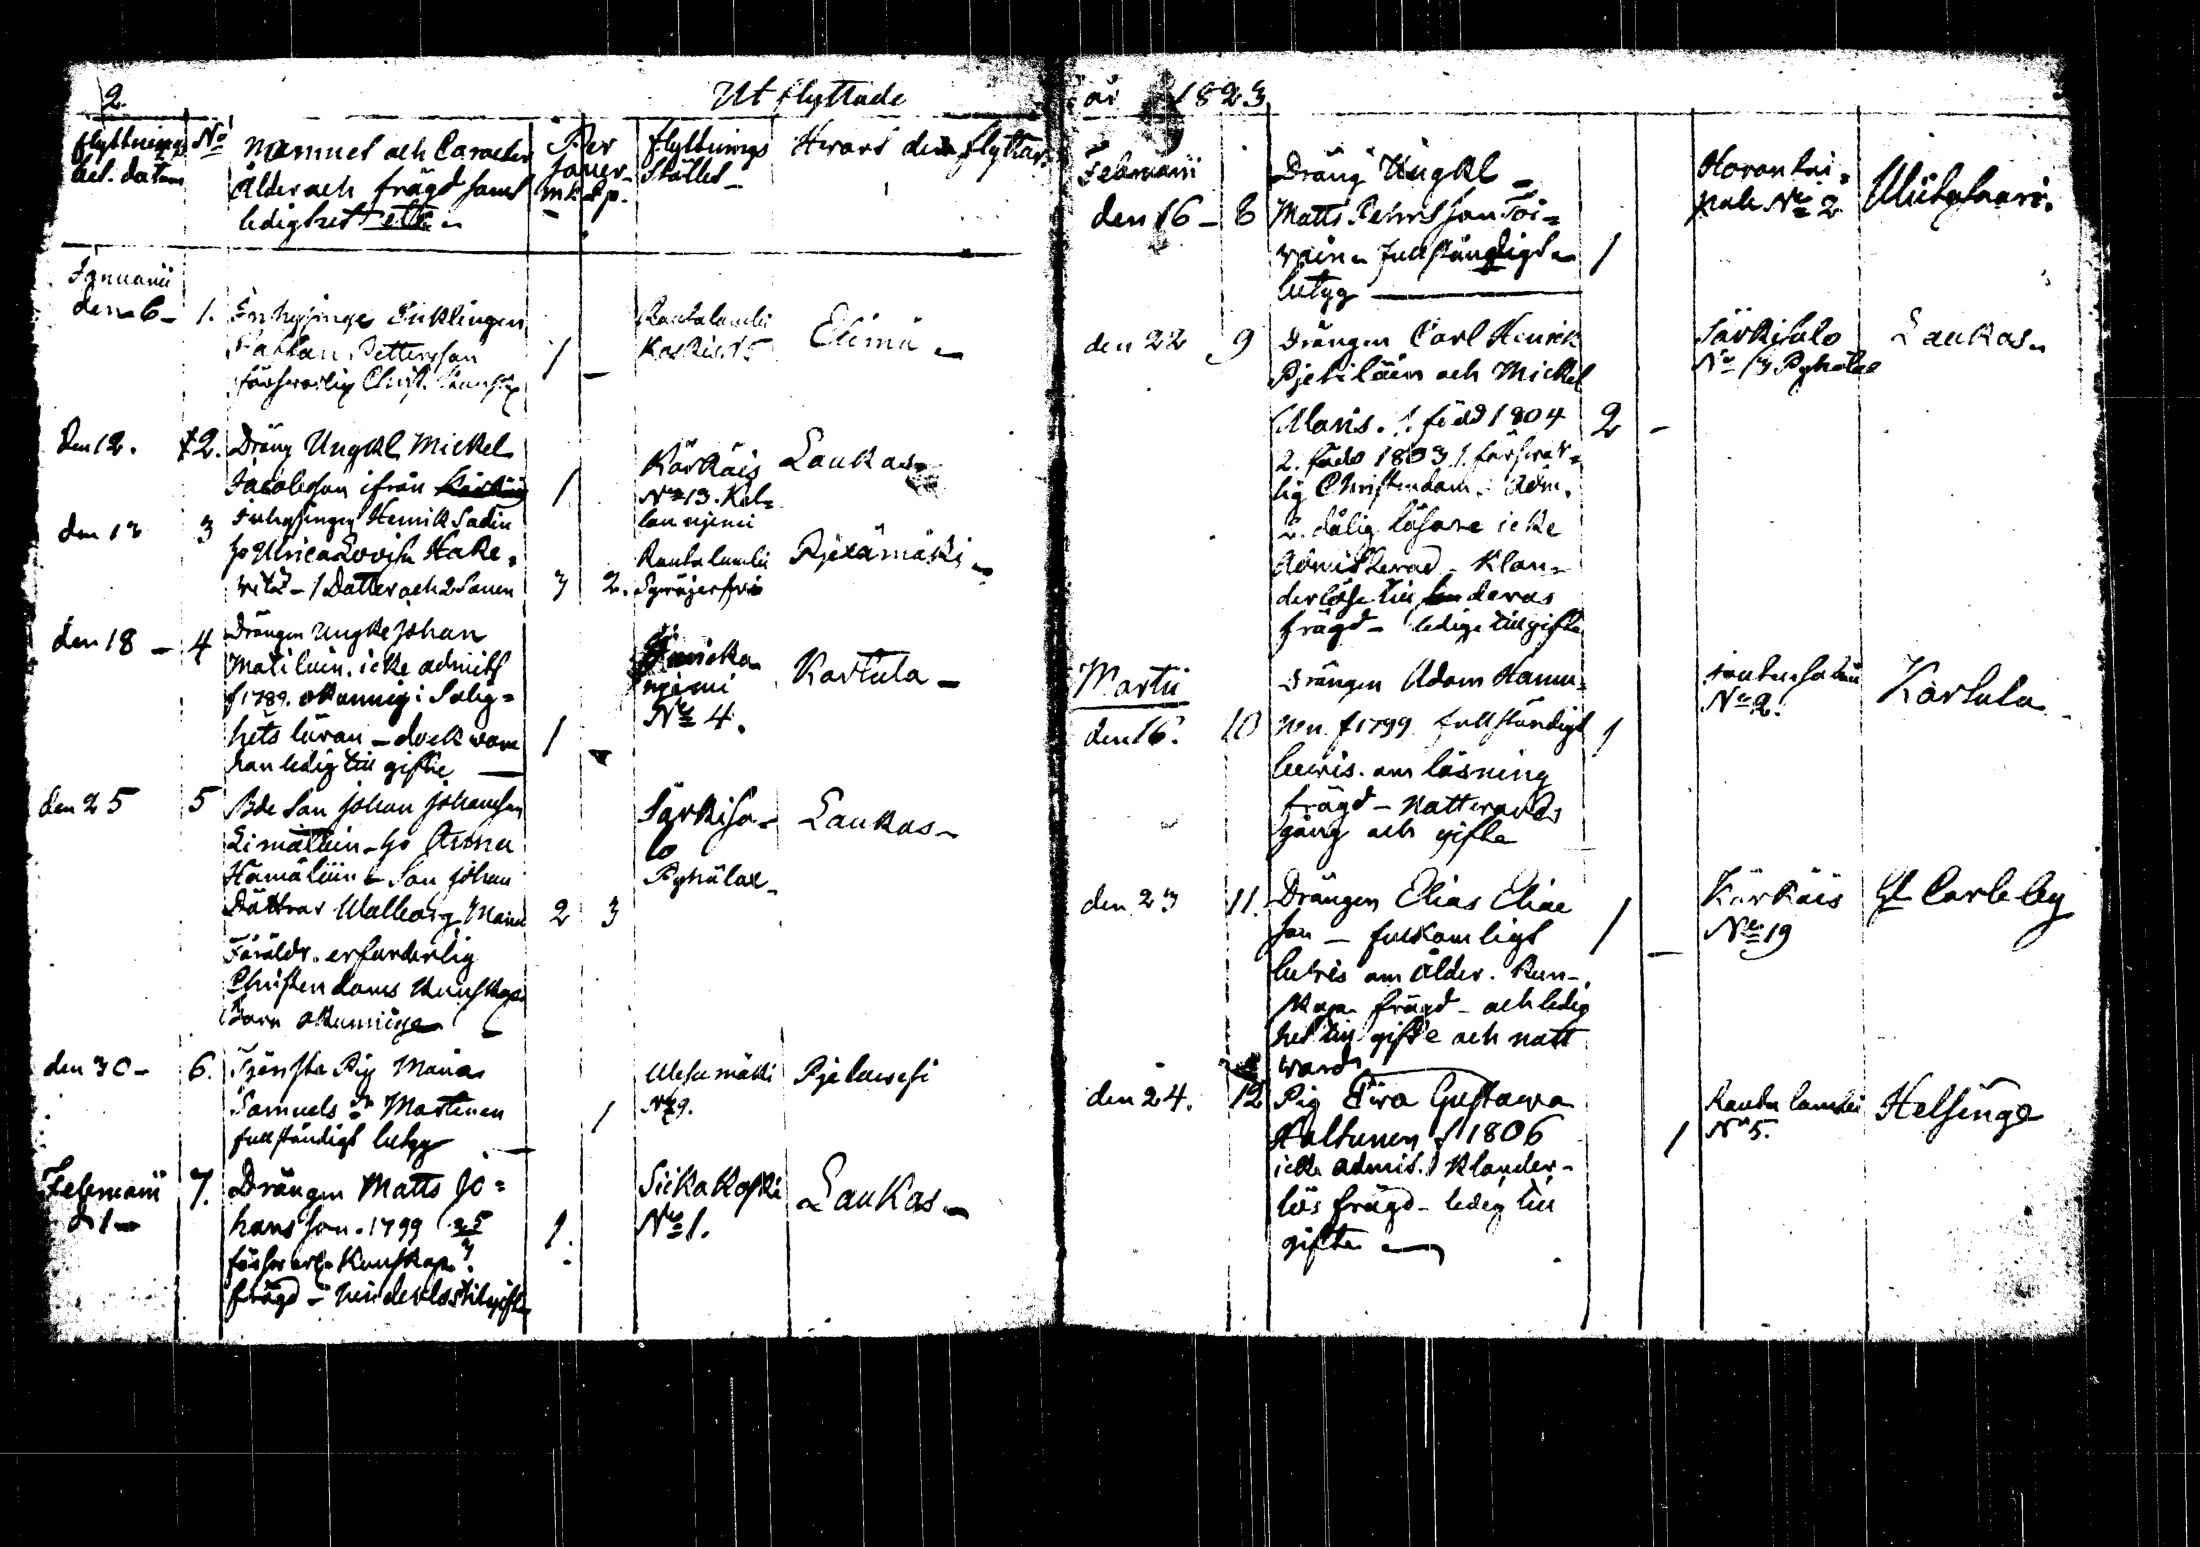 2.
Ut flyttade
flyttnings bet. datum
No
Namnet och Caracter
Ålder och frägd samt
ledighet etc.
Per soner
mk qp.
flyttnings Stället
Hwart den flyttar.
Januarii
den 6 1. Inhysinge
Petterson
försvarlig Christ.
1
Rautalambi
No 5
Elimä
Den 12. 2. Dräng Ungkl Mickel
Jacobsson ifrån
1
Kärkäis
No 13. Kel-
lan njemi
Laukas
den 13 3 Inhysingen Henrik Sadin
ho Ulrica Lovisa Hake-
witz - 1 Dotter och 2 Söner
3 2.
Rautalambi
Pjexämäki
den 18 4 Drängen Ungke Johan
Matilain. icke admits
f 1789. okunnig i Salig-
hets läran - dock vare
han ledig till gifte
1
njemi
No 4.
Kartula
den 25 5 Bde Son Johan Johansson
ho Anna
Hämäläin Son Johan
Döttrar Walborg Maria
Föräldr. erforderlig
Christendoms Kunskap
Barn okunnige
2 3
Särkisa-
lo
Pyhälax
Laukas
den 30 6. Tjenste Pig Maria
Samuels dr Martinen
fullständigt betyg
1
No 9.
Pjelawesi
Februarii
d 1 7. Drängen Matts Jo-
hansson. 1799
försvarl. Kunskap.
frägd - hinderlös til gifte
1.
Siikakoski
No 1.
Laukas
år 1823
Februarii
den 16 8
Dräng Ungkl
Matts Pehrsson Toi-
wain fullständigt
betyg
1
No 2
den 22 9 Drängen Carl Henrik
Pjetiläin och Mickel
Manis. 1. född 1804
2. född 1803 1. försvar-
lig Christendom. Adm.
2. dålig läsare icke
Admitterad - Klan-
derlöse till deras
frägd - ledige till gifte
2
Särkisalo
No 13 Pyhälax
Laukas
Martii
den 16. 10 Drängen Adam Hanni-
nen f 1799 fullständigt
bewis om läsning
frägd - Nattwards
gång och gifte
1
No 2.
Kartula
den 23 11. Drängen Elias Eliae
son - fulkomligt
bewis om Ålder. Kun-
skap frägd - och ledig
het till gifte och natt
ward
1
Kärkäis
No 19
Gl Carleby
den 24. 12 Pig Ewa Gustawa
Haltunen f 1806
icke admit. Klander-
lös frägd - ledig till
gifte
1
Rautalambi
No 5.
Helsinge